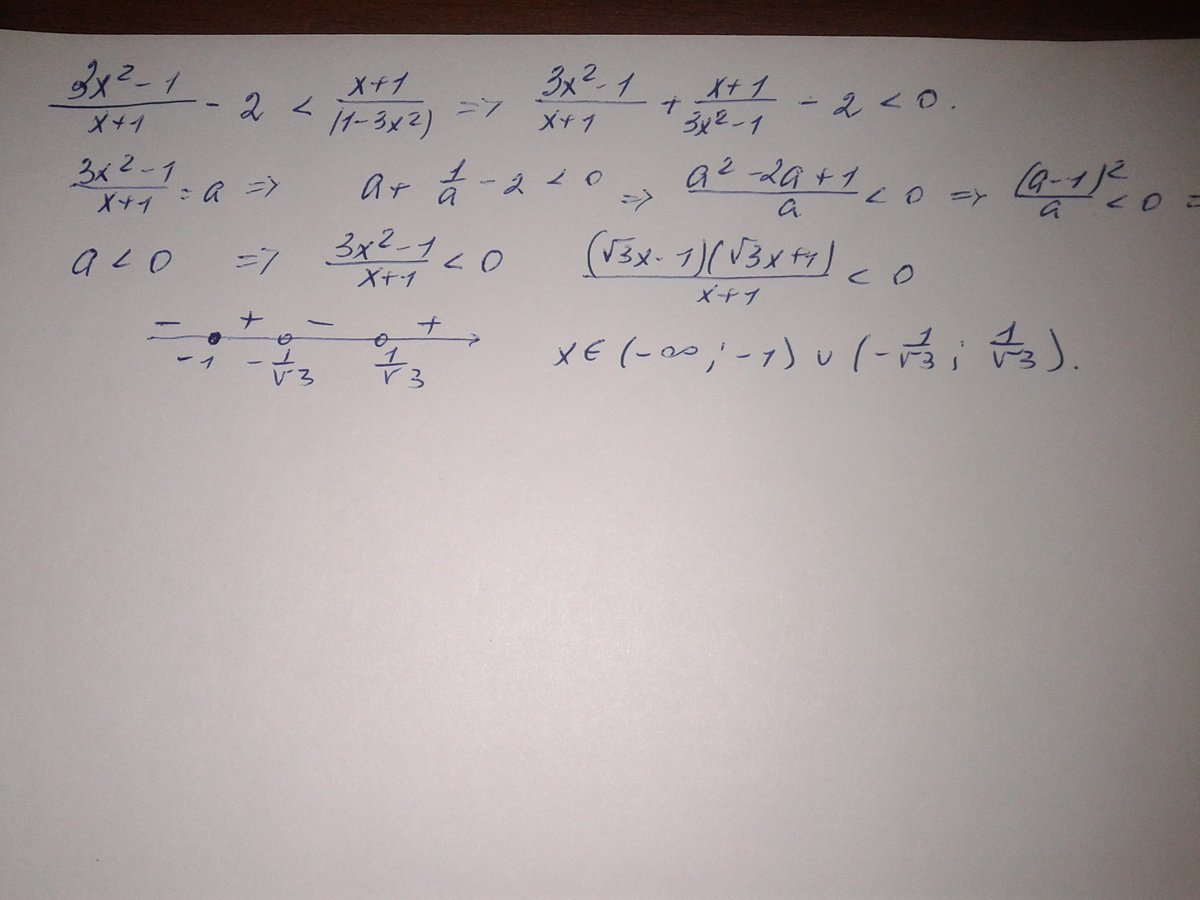 (3x² - 1)/(x+1) - 2 < (x+1)/(1-3x²) => (3x² - 1)/(x+1) + (x+1)/(3x² - 1) - 2 < 0.
(3x² - 1)/(x+1) = a => a + 1/a - 2 < 0 => (a² - 2a + 1)/a < 0 => (a-1)²/a < 0 =
a < 0 => (3x² - 1)/(x+1) < 0 (√3x - 1)(√3x + 1)/(x+1) < 0
- + - +
-1 -1/√3 1/√3 x ∈ (-∞; -1) ∪ (-1/√3; 1/√3).